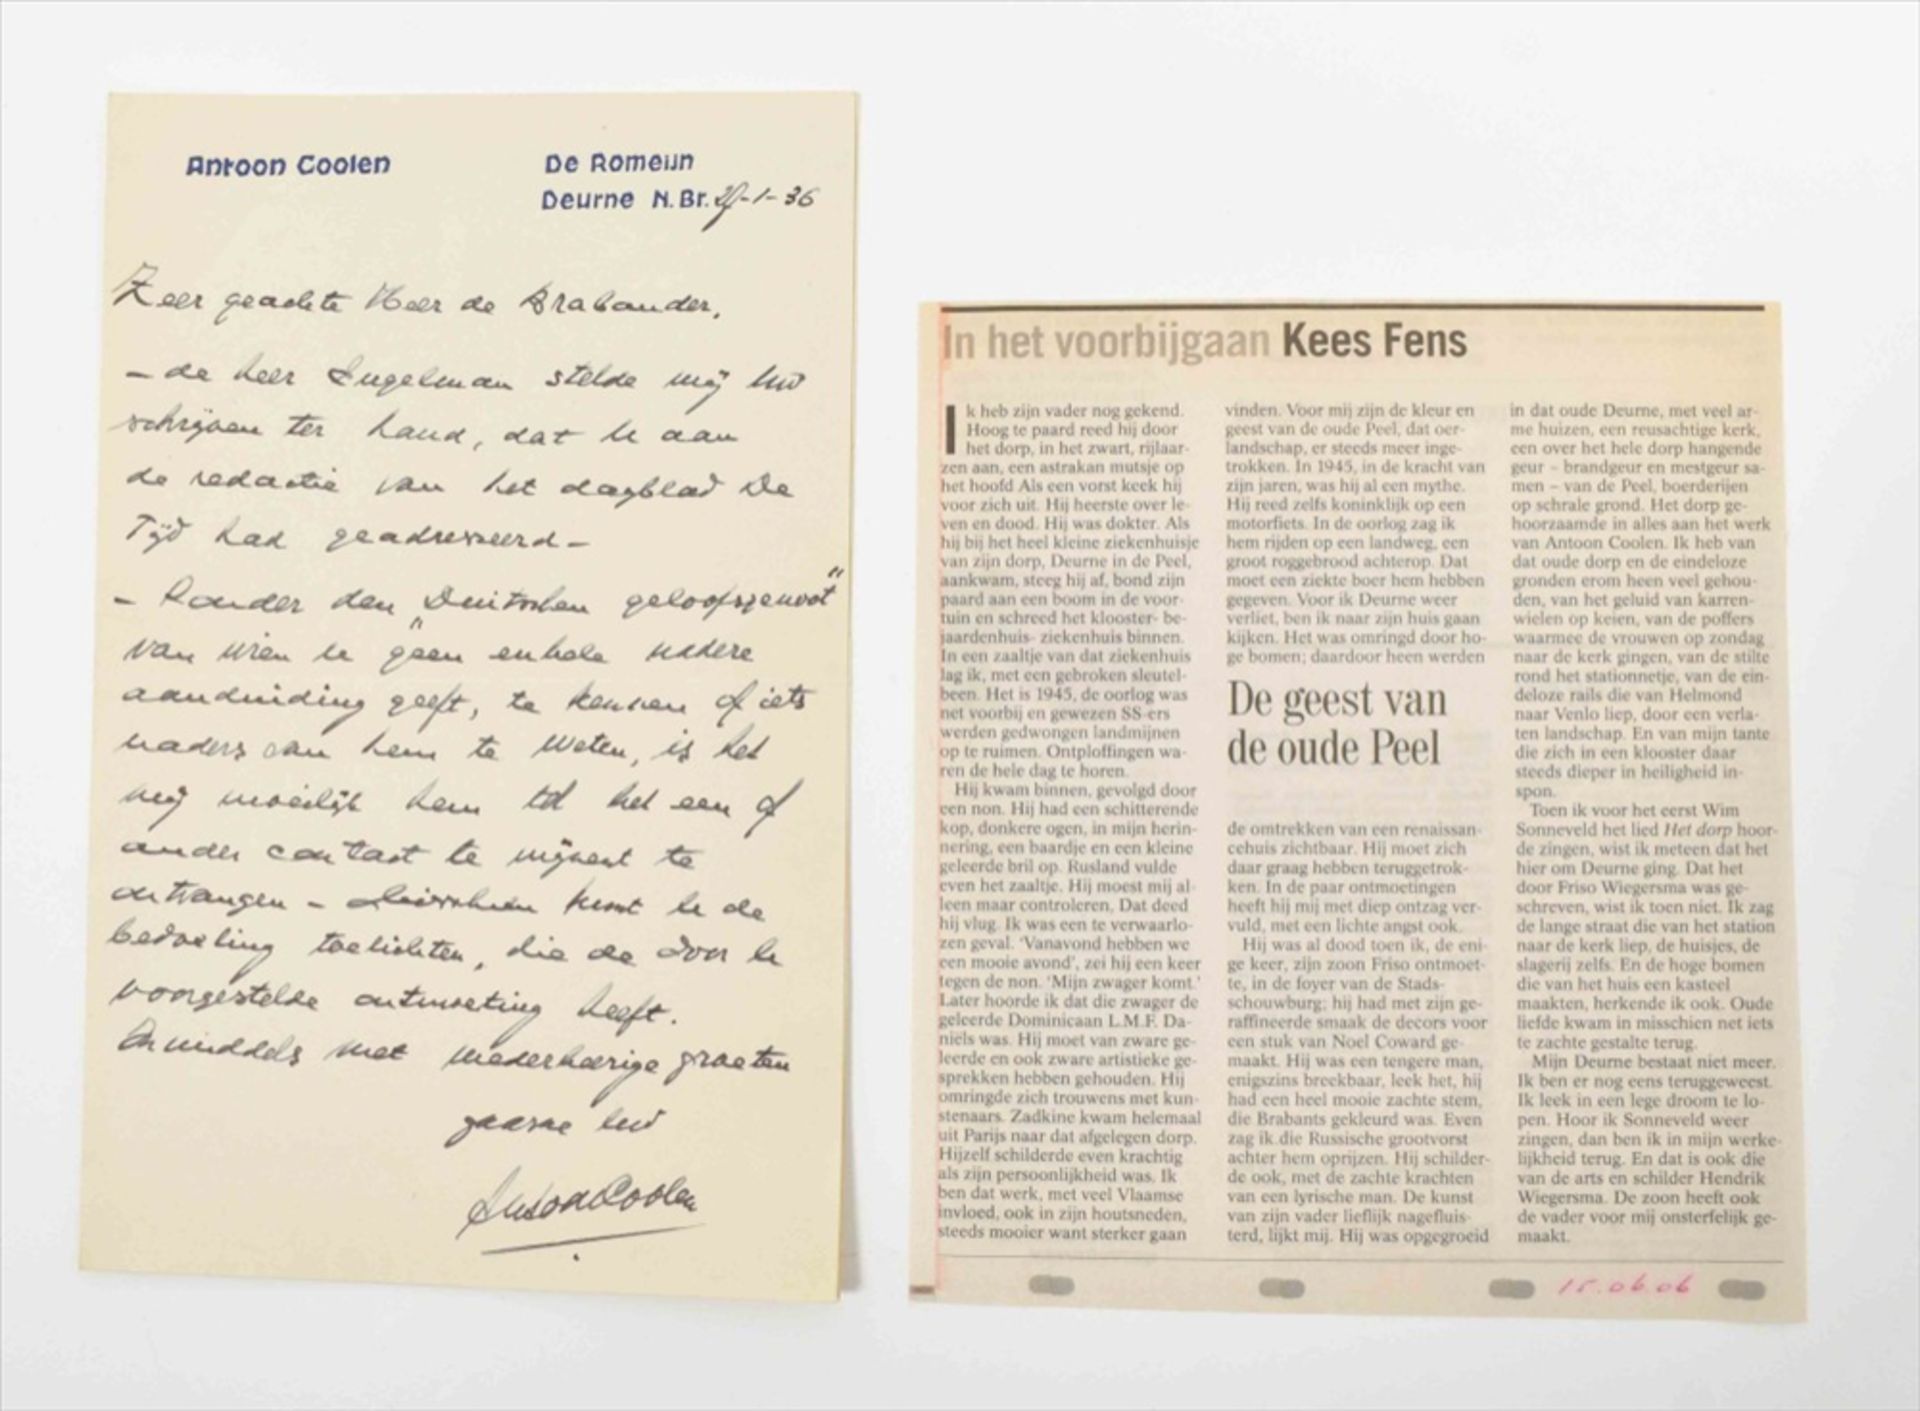 Antoon Coolen
De Romeijn
Deurne N.Br. 27-1-36
Zeer geachte Heer de Brabander,
– de heer Engelman stelde mij Uw
schrijven ter hand, dat U aan
de redactie van het dagblad De
Tijd had geadresseerd –
– Zonder den "Duitschen geloofsgenoot"
van wien U geen enkele nadere
aanduiding geeft, te kennen of iets
naders van hem te weten, is het
mij moeilijk hem tot het een of
ander contact te mijnent te
ontvangen – Misschien kunt U de
bedoeling toelichten, die de door U
voorgestelde ontmoeting heeft.
Inmiddels met wederkeerige groeten
gaarne Uw
Antoon Coolen
In het voorbijgaan Kees Fens
Ik heb zijn vader nog gekend.
Hoog te paard reed hij door
het dorp, in het zwart, rijlaar-
zen aan, een astrakan mutsje op
het hoofd Als een vorst keek hij
voor zich uit. Hij heerste over le-
ven en dood. Hij was dokter. Als
hij bij het heel kleine ziekenhuisje
van zijn dorp, Deurne in de Peel,
aankwam, steeg hij af, bond zijn
paard aan een boom in de voor-
tuin en schreed het klooster- be-
jaardenhuis- ziekenhuis binnen.
In een zaaltje van dat ziekenhuis
lag ik, met een gebroken sleutel-
been. Het is 1945, de oorlog was
net voorbij en gewezen SS-ers
werden gedwongen landmijnen
op te ruimen. Ontploffingen wa-
ren de hele dag te horen.
Hij kwam binnen, gevolgd door
een non. Hij had een schitterende
kop, donkere ogen, in mijn herin-
nering, een baardje en een kleine
geleerde bril op. Rusland vulde
even het zaaltje. Hij moest mij al-
leen maar controleren, Dat deed
hij vlug. Ik was een te verwaarlo-
zen geval. 'Vanavond hebben we
een mooie avond', zei hij een keer
tegen de non. 'Mijn zwager komt.'
Later hoorde ik dat die zwager de
geleerde Dominicaan L.M.F. Da-
niëls was. Hij moet van zware ge-
leerde en ook zware artistieke ge-
sprekken hebben gehouden. Hij
omringde zich trouwens met kun-
stenaars. Zadkine kwam helemaal
uit Parijs naar dat afgelegen dorp.
Hijzelf schilderde even krachtig
als zijn persoonlijkheid was. Ik
ben dat werk, met veel Vlaamse
invloed, ook in zijn houtsneden,
steeds mooier want sterker gaan
vinden. Voor mij zijn de kleur en
geest van de oude Peel, dat oer-
landschap, er steeds meer inge-
trokken. In 1945, in de kracht van
zijn jaren, was hij al een mythe.
Hij reed zelfs koninklijk op een
motorfiets. In de oorlog zag ik
hem rijden op een landweg, een
groot roggebrood achterop. Dat
moet een ziekte boer hem hebben
gegeven. Voor ik Deurne weer
verliet, ben ik naar zijn huis gaan
kijken. Het was omringd door ho-
ge bomen; daardoor heen werden
De geest van
de oude Peel
de omtrekken van een renaissan-
cehuis zichtbaar. Hij moet zich
daar graag hebben teruggetrok-
ken. In de paar ontmoetingen
heeft hij mij met diep ontzag ver-
vuld, met een lichte angst ook.
Hij was al dood toen ik, de eni-
ge keer, zijn zoon Friso ontmoet-
te, in de foyer van de Stads-
schouwburg; hij had met zijn ge-
raffineerde smaak de decors voor
een stuk van Noel Coward ge-
maakt. Hij was een tengere man,
enigszins breekbaar, leek het, hij
had een heel mooie zachte stem,
die Brabants gekleurd was. Even
zag ik die Russische grootvorst
achter hem oprijzen. Hij schilder-
de ook, met de zachte krachten
van een lyrische man. De kunst
van zijn vader lieflijk nagefluis-
terd, lijkt mij. Hij was opgegroeid
in dat oude Deurne, met veel ar-
me huizen, een reusachtige kerk,
een over het hele dorp hangende
geur – brandgeur en mestgeur sa-
men – van de Peel, boerderijen
op schrale grond. Het dorp ge-
hoorzaamde in alles aan het werk
van Antoon Coolen. Ik heb van
dat oude dorp en de eindeloze
gronden erom heen veel gehou-
den, van het geluid van karren-
wielen op keien, van de poffers
waarmee de vrouwen op zondag
naar de kerk gingen, van de stilte
rond het stationnetje, van de ein-
deloze rails die van Helmond
naar Venlo liep, door een verla-
ten landschap. En van mijn tante
die zich in een klooster daar
steeds dieper in heiligheid in-
spon.
Toen ik voor het eerst Wim
Sonneveld het lied Het dorp hoor-
de zingen, wist ik meteen dat het
hier om Deurne ging. Dat het
door Friso Wiegersma was ge-
schreven, wist ik toen niet. Ik zag
de lange straat die van het station
naar de kerk liep, de huisjes, de
slagerij zelfs. En de hoge bomen
die van het huis een kasteel
maakten, herkende ik ook. Oude
liefde kwam in misschien net iets
te zachte gestalte terug.
Mijn Deurne bestaat niet meer.
Ik ben er nog eens teruggeweest.
Ik leek in een lege droom te lo-
pen. Hoor ik Sonneveld weer
zingen, dan ben ik in mijn werke-
lijkheid terug. En dat is ook die
van de arts en schilder Hendrik
Wiegersma. De zoon heeft ook
de vader voor mij onsterfelijk ge-
maakt.
15.06.06